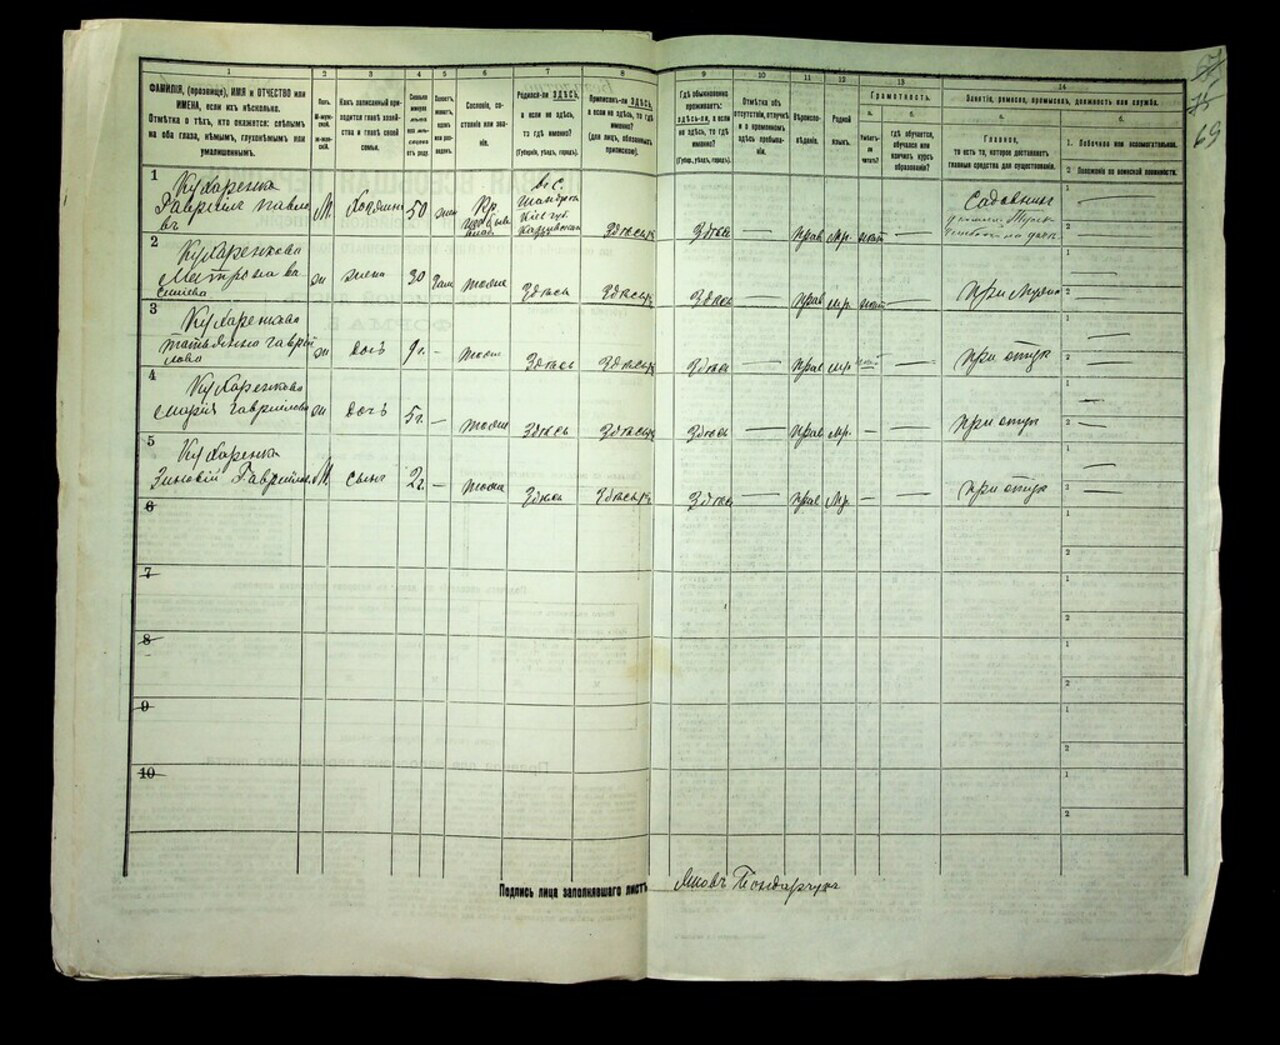 69
1 2 3 4 5 6 7 8 9 10 11 12 13 14
ФАМИЛІЯ, (прозвище), ИМЯ и ОТЧЕСТВО или
ИМЕНА, если ихъ нѣсколько.
Отмѣтка о тѣхъ, кто окажется: слѣпымъ
на оба глаза, нѣмымъ, глухонѣмымъ или
умалишеннымъ.
Полъ.
М-муж-
ской.
Ж-жен-
скій.
Какъ записанный при-
ходится главѣ хозяй-
ства и главѣ своей
семьи.
Сколько
минуло
лѣтъ
или мѣ-
сяцевъ
отъ роду.
Холостъ,
женатъ,
вдовъ
или раз-
веденъ.
Сословіе, со-
стояніе или зва-
ніе.
Родился-ли ЗДѢСЬ,
а если не здѣсь,
то гдѣ именно?
(Губернія, уѣздъ, городъ).
Приписанъ-ли ЗДѢСЬ,
а если не здѣсь, то гдѣ
именно?
(для лицъ, обязанныхъ
припискою).
Гдѣ обыкновенно
проживаетъ:
здѣсь-ли, а если
не здѣсь, то гдѣ
именно?
(Губер., уѣздъ, городъ).
Отмѣтка объ
отсутствіи, отлучкѣ
и о временномъ
здѣсь пребыва-
ніи.
Вѣроиспо-
вѣданіе.
Родной
языкъ.
Грамотность.
а.
Умѣетъ-
ли
читать?
б.
гдѣ обучается,
обучался или
кончилъ курсъ
образованія?
Занятіе, ремесло, промыселъ, должность или служба.
а.
Главное,
то есть то, которое доставляетъ
главныя средства для существованія.
б.
1. Побочное или вспомогательное.
2. Положеніе по воинской повинности.
1
Кухаренко
Гавріилъ Павло
въ
М. Хозяинъ 50 жен Кр. Здѣсь Здѣсь — прав Мр. нѣт —
Садовникъ
2
Кухаренкова
Матрона Ва
силіева
ж жена 30 Зам тоже Здѣсь Здѣсь Здѣсь — прав мр. нѣт —
При Мужѣ
3
Кухаренкова
Татьянна Гаврі
лова
ж дочь 9 г. — тоже Здѣсь Здѣсь Здѣсь — прав мр. —
при отцѣ
4
Кухаренкова
Марія Гавриілова
ж дочь 5 г. — тоже Здѣсь Здѣсь Здѣсь — прав мр. — —
при отцѣ
5
Кухаренко
Зиновій Гавриілов
М. сынъ 2 г. — тоже Здѣсь Здѣсь Здѣсь — прав Мр. — —
при отцѣ
6
7
8
9
10
Подпись лица заполнявшаго листъ
Яковъ Бондарчукъ